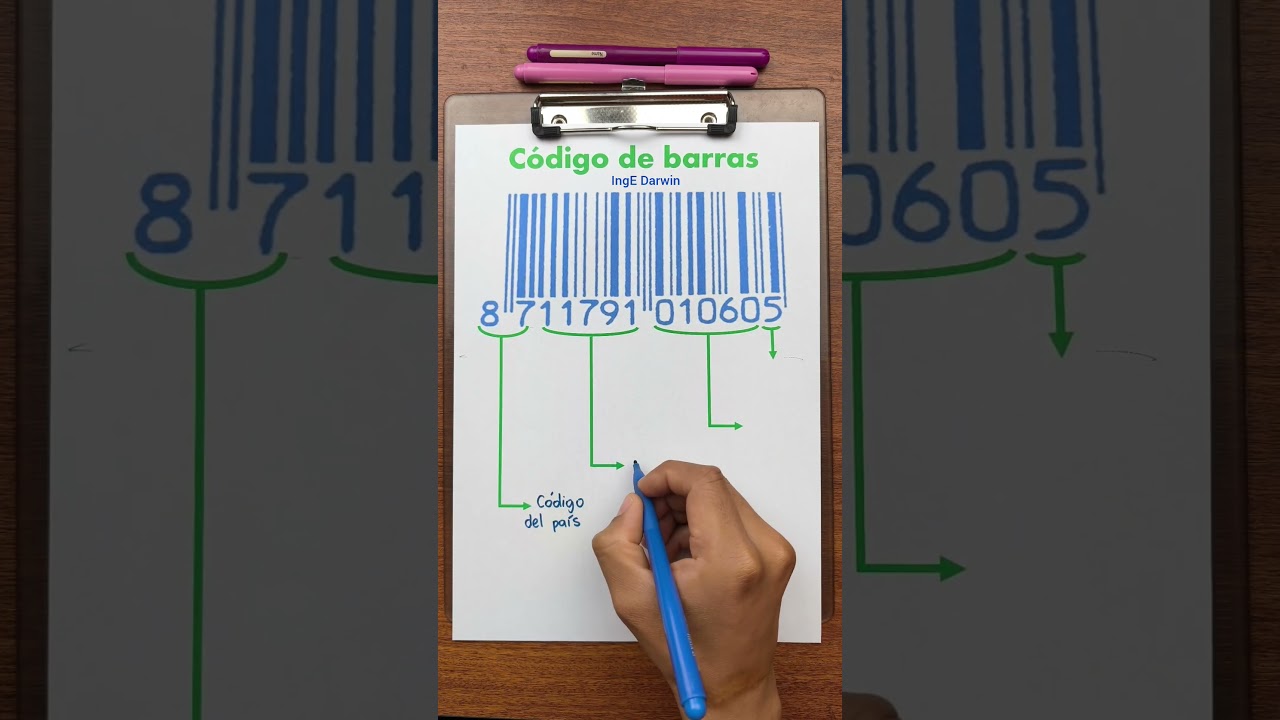 Código de barras
IngE Darwin
8 711791 010605
Código
del país